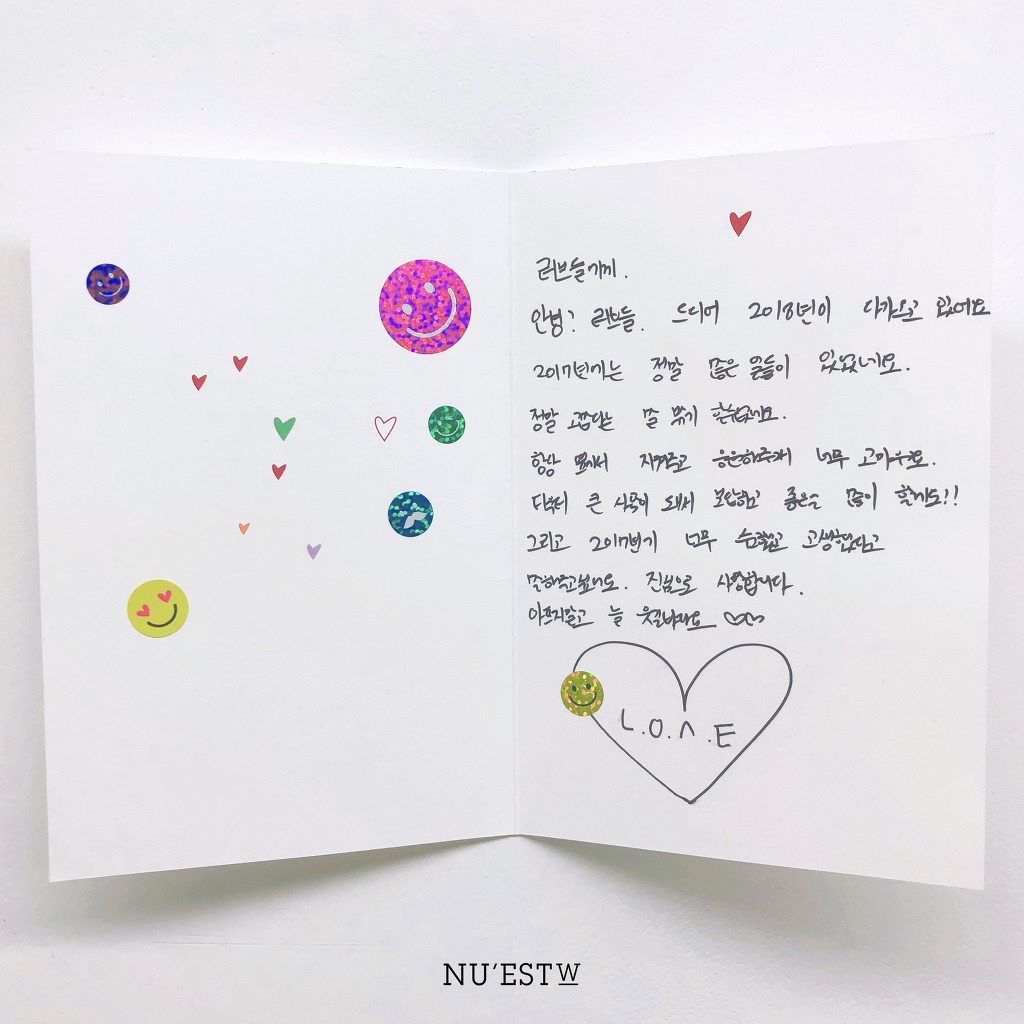 러브들에게.
안녕? 러브들. 드디어 2018년이 다가오고 있어요
2017년에는 정말 좋은 일들이 있었네요.
정말 말 할
항상 옆에서 지켜주고 응원해주셔서 너무 고마워요.
더 큰 보답하고 좋은 많이 할게요!!
그리고 2017년 너무 수고했고 고생했다고
말해주고싶어요. 진심으로 사랑합니다.
아프지말고 늘
L.O.Λ.E
NU'EST W